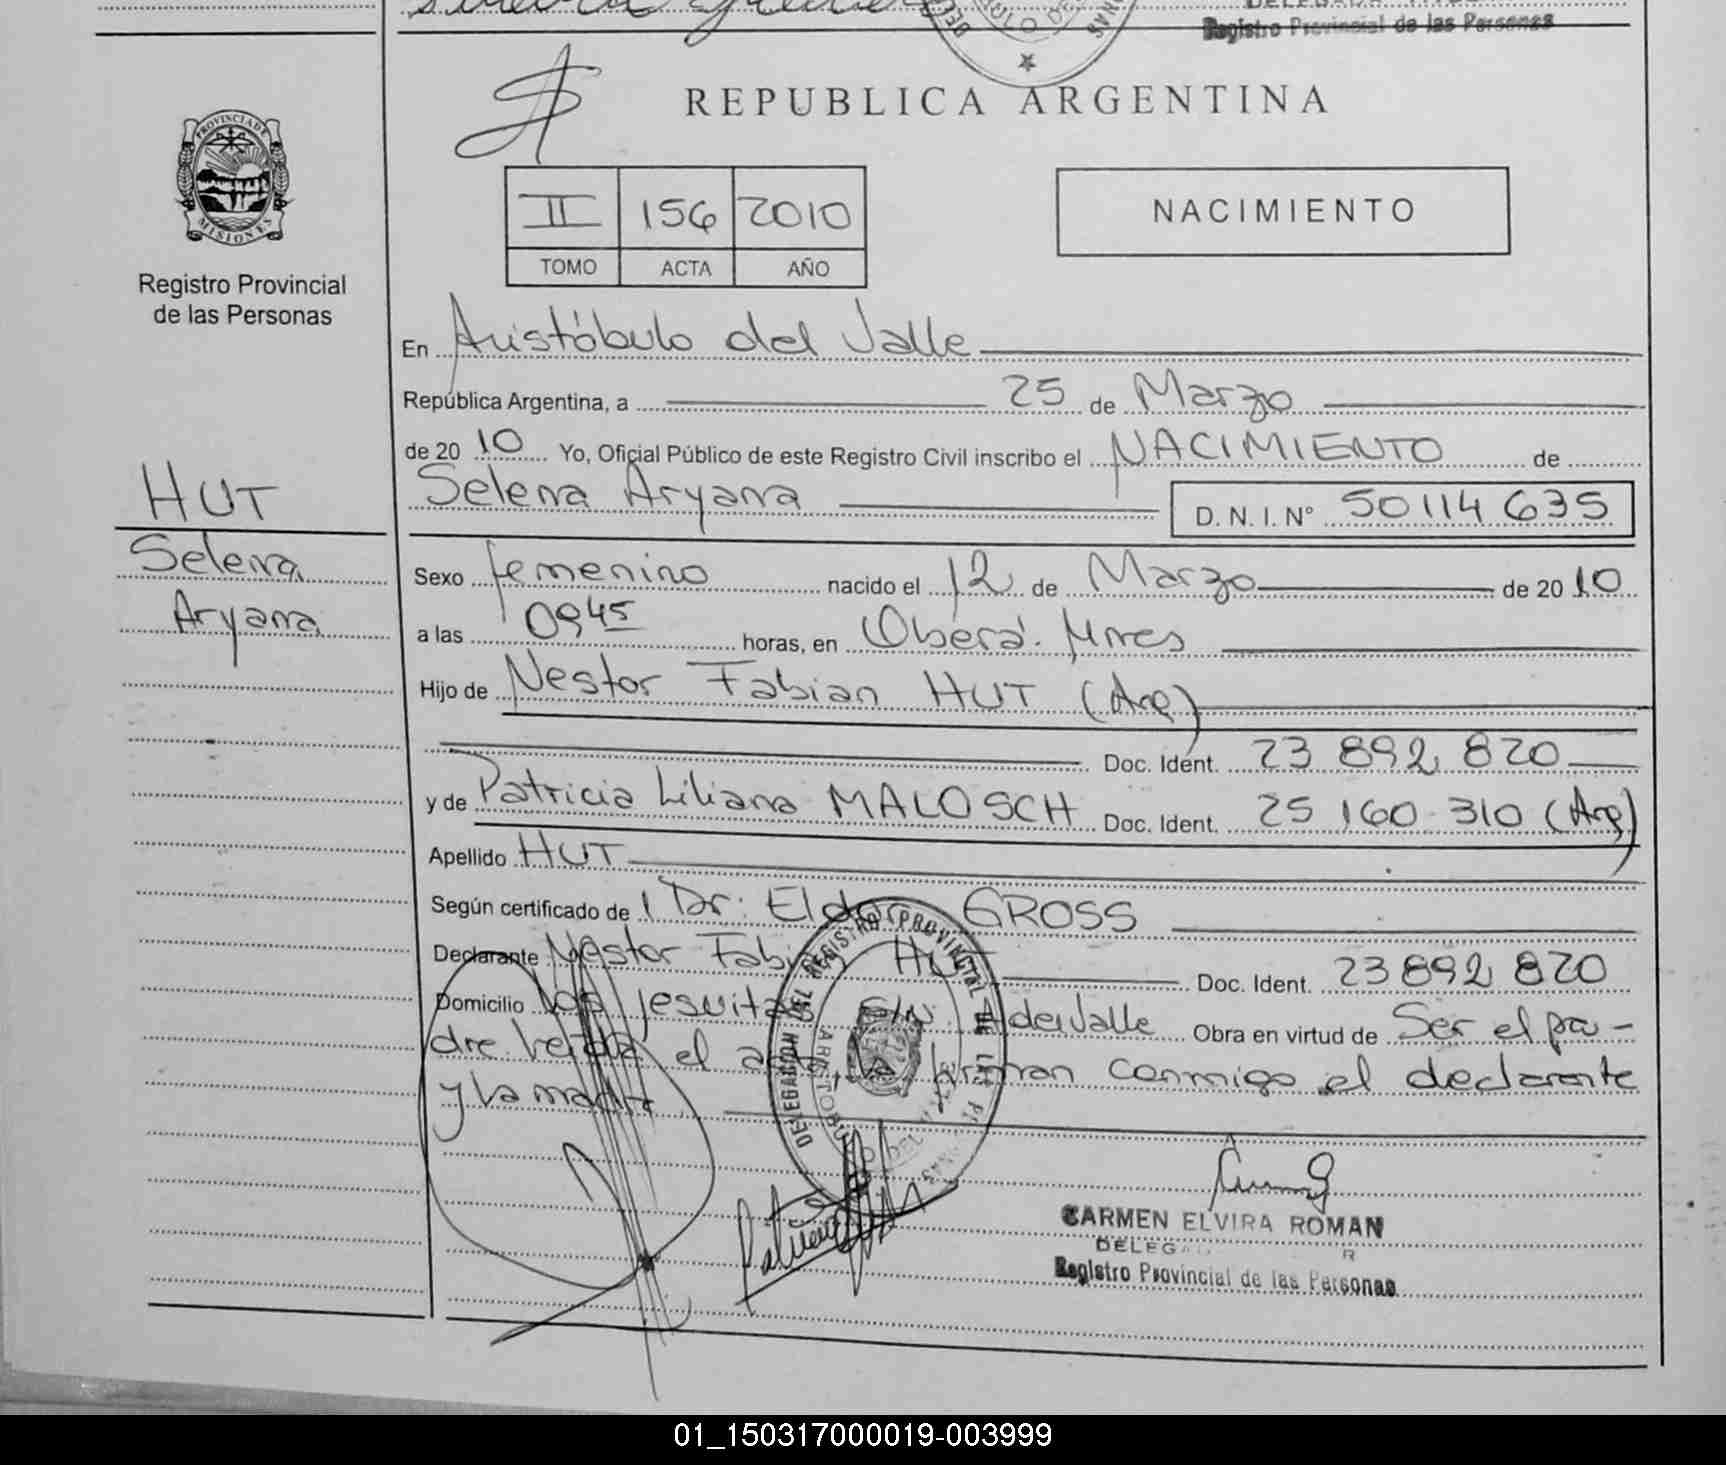 Registro Provincial de las Personas
REPUBLICA ARGENTINA
PROVINCIA DE
MISIONES
Registro Provincial
de las Personas
II 156 2010
TOMO ACTA AÑO
NACIMIENTO
En Aristóbulo del Valle
República Argentina, a 25 de Marzo
de 2010 Yo, Oficial Público de este Registro Civil inscribo el NACIMIENTO de
Selena Aryana D. N. I. N° 50114635
HUT
Selena
Aryana
Sexo femenino nacido el 12 de Marzo de 2010
a las 0945 horas, en Oberá. Mnes
Hijo de Nestor Fabian HUT (Arg)
Doc. Ident. 23 892 820
y de Patricia Liliana MALOSCH Doc. Ident. 25 160 310 (Arg)
Apellido HUT
Según certificado de Dr. Eldor GROSS
Declarante Nestor Fabian HUT Doc. Ident. 23892820
Domicilio Los Jesuitas S/N. A del Valle Obra en virtud de Ser el pa-
dre. Leída el acta, la firman conmigo el declarante
y la madre.
DELEGACION DEL REGISTRO PROVINCIAL DE LAS PERSONAS
CARMEN ELVIRA ROMAN
Registro Provincial de las Personas
01_150317000019-003999